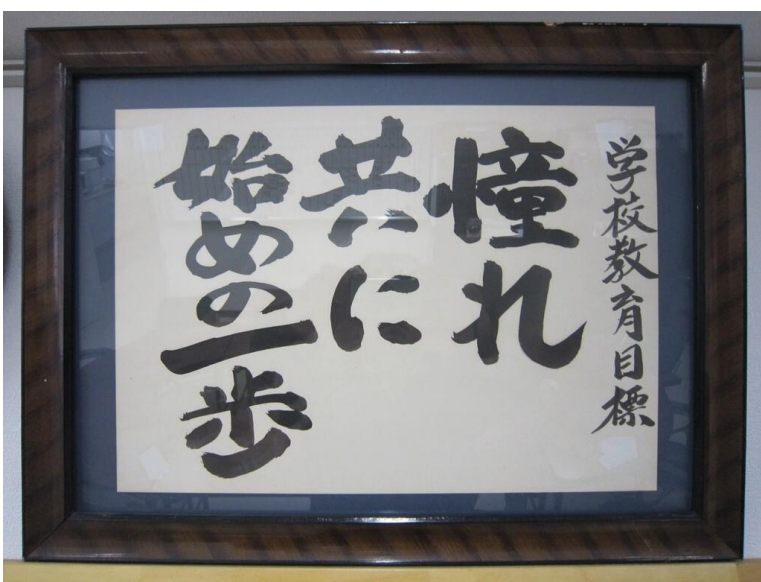 学校教育目標
憧れ
共に
始めの一歩